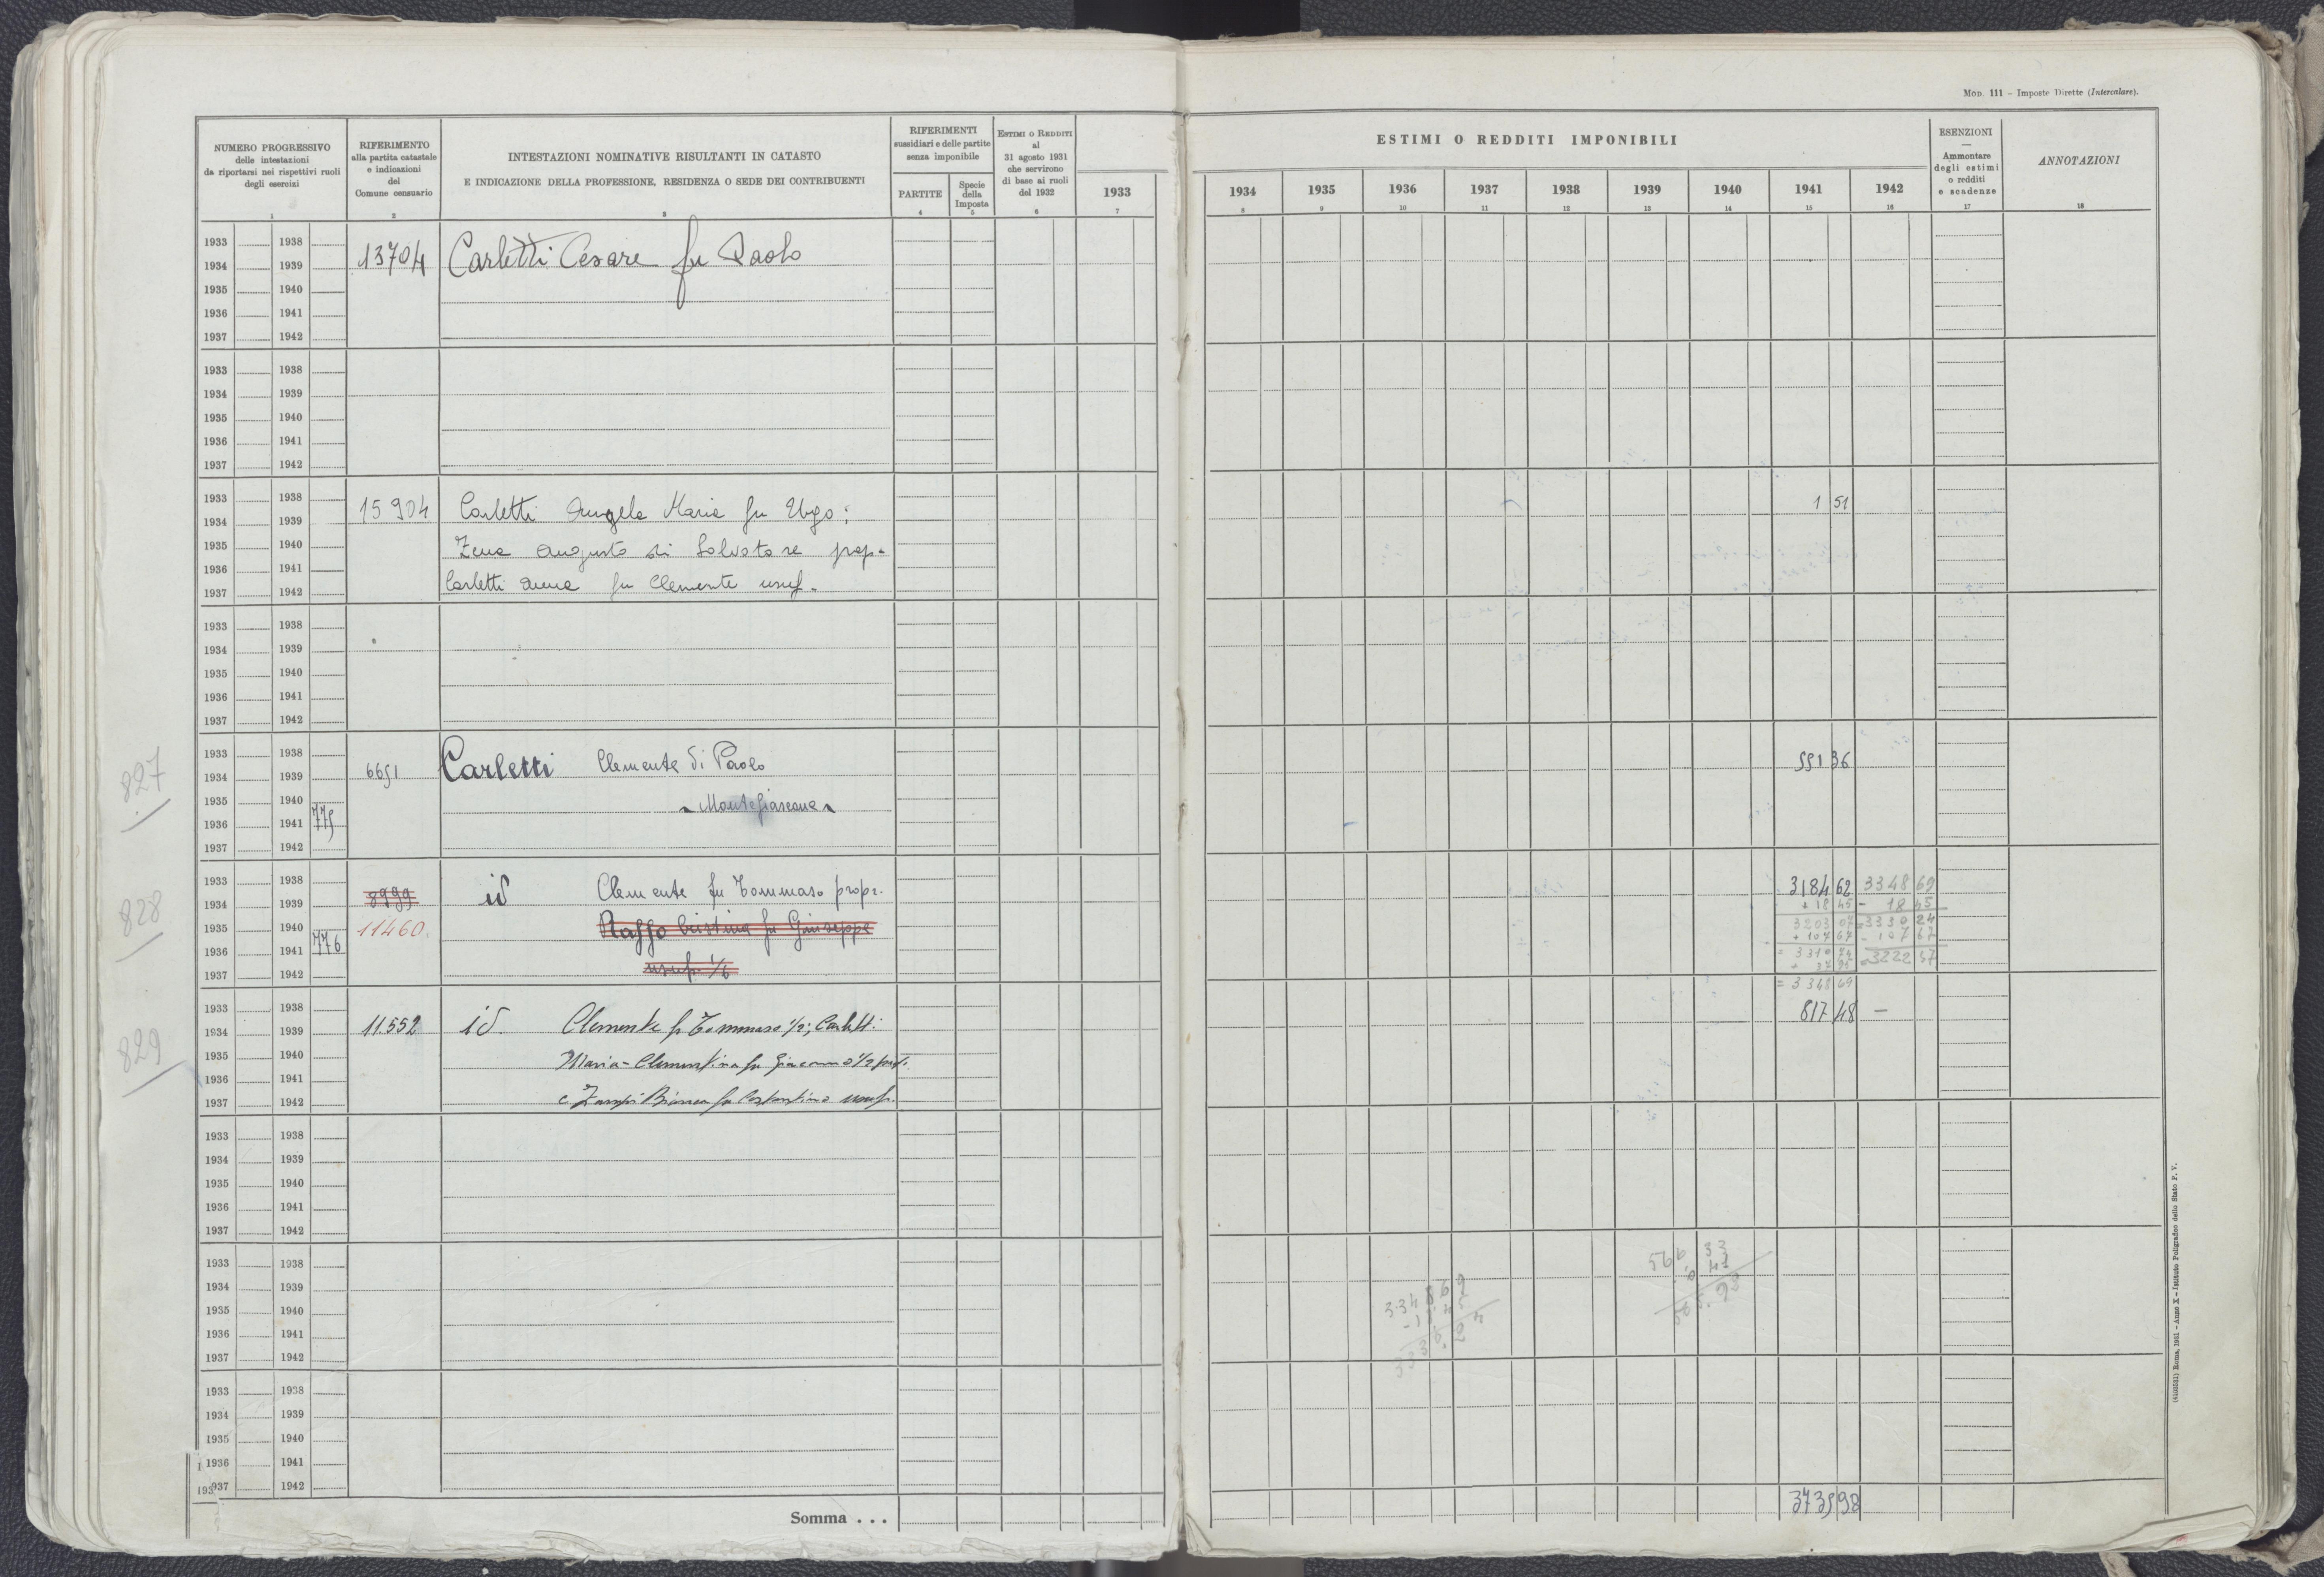 Mod. 111 – Imposte Dirette (Intercalare).
NUMERO PROGRESSIVO
delle intestazioni
da riportarsi nei rispettivi ruoli
degli esercizi
1
RIFERIMENTO
alla partita catastale
e indicazioni
del
Comune censuario
2
INTESTAZIONI NOMINATIVE RISULTANTI IN CATASTO
E INDICAZIONE DELLA PROFESSIONE, RESIDENZA O SEDE DEI CONTRIBUENTI
3
RIFERIMENTI
sussidiari e delle partite
senza imponibile
PARTITE
4
Specie
della
Imposta
5
ESTIMI O REDDITI
al
31 agosto 1931
che servirono
di base ai ruoli
del 1932
6
1933
7
ESTIMI O REDDITI IMPONIBILI
1934 1935 1936 1937 1938 1939 1940 1941 1942
8 9 10 11 12 13 14 15 16
ESENZIONI
—
Ammontare
degli estimi
o redditi
e scadenze
17
ANNOTAZIONI
18
1933 1938
1934 1939 13704 Carletti Cesare fu Paolo
1935 1940
1936 1941
1937 1942
1933 1938
1934 1939
1935 1940
1936 1941
1937 1942
1933 1938
1934 1939 15904 Carletti Angela Maria fu Ugo; 1 51
1935 1940 Zena Augusto di Salvatore prop.
1936 1941
1937 1942 Carletti Anna fu Clemente usuf.
1933 1938
1934 1939
1935 1940
1936 1941
1937 1942
827
1933 1938
1934 1939 6651 Carletti Clemente di Paolo 551 36
1935 1940
1936 1941 775 Montefiascone
1937 1942
828
1933 1938
1934 1939 8999 id Clemente fu Tommaso propr. 3184 62 3348 69
+ 18 45 - 18 45
1935 1940 11460. Raffo Cristina fu Giuseppe 3203 07 = 3330 24
1936 1941 776 + 107 67 - 107 67
1937 1942 usuf. 1/6 = 3310 74 = 3222 57
+ 37 95
= 3348 69
829
1933 1938
1934 1939 11.552 id. Clemente fu Tommaso 1/2; Carletti 817 48 —
1935 1940 Maria-Clementina fu Giacomo 1/2 prop.
1936 1941
1937 1942 e Zampi Bianca fu Costantino usuf.
1933 1938
1934 1939
1935 1940
1936 1941
1937 1942
1933 1938
1934 1939
1935 1940
1936 1941
1937 1942
334869
1933 1938
1934 1939
1935 1940
1936 1941
1937 1942
Somma . . . 3735 98
(4103511) Roma, 1931 – Anno X – Istituto Poligrafico dello Stato P. V.